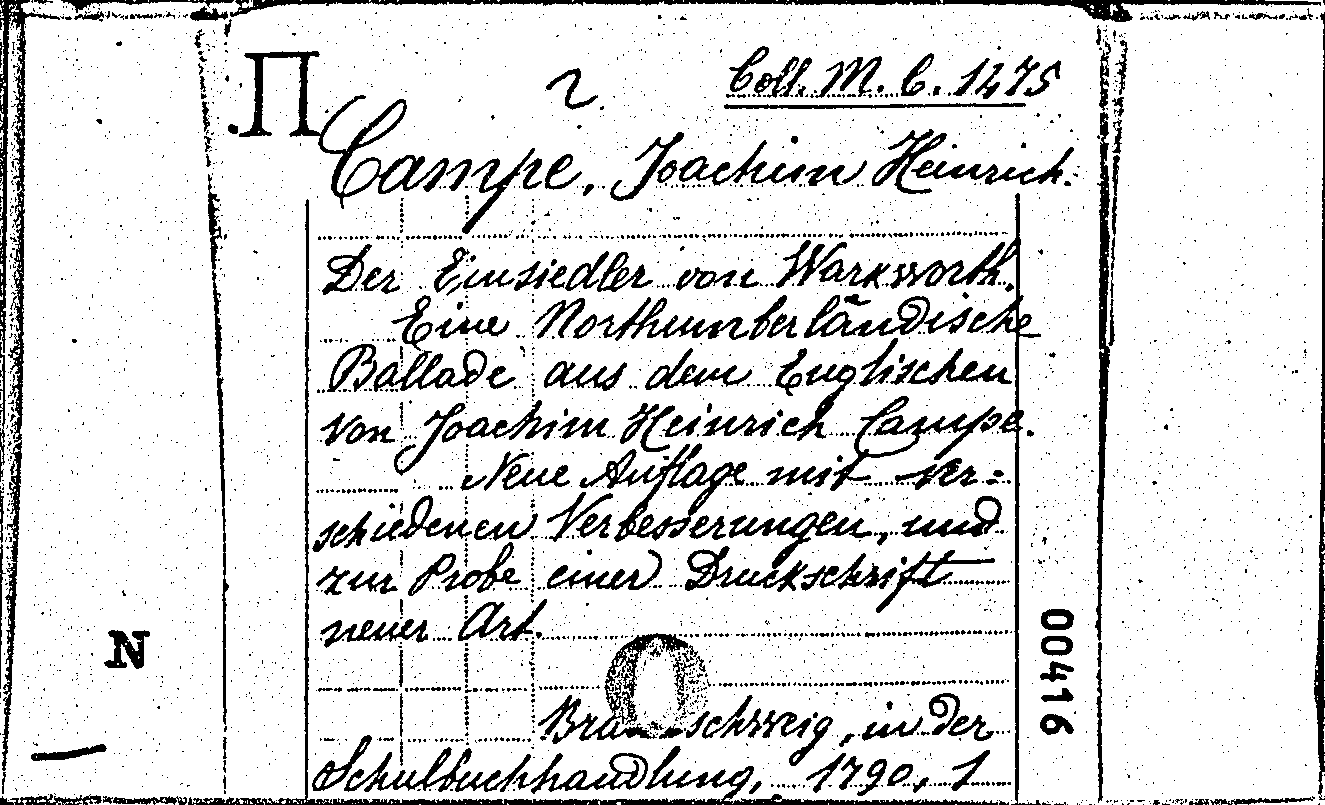 П
2.
Coll. M. C. 1475
Campe, Joachim Heinrich.
Der Einsiedler von Warkworth.
Eine Northumberländische
Ballade aus dem Englischen
von Joachim Heinrich Campe.
Neue Auflage mit ver=
schiedenen Verbesserungen, und
zur Probe einer Druckschrift
neuer Art.
Braunschweig, in der
Schulbuchhandlung, 1790, 1
N
00416